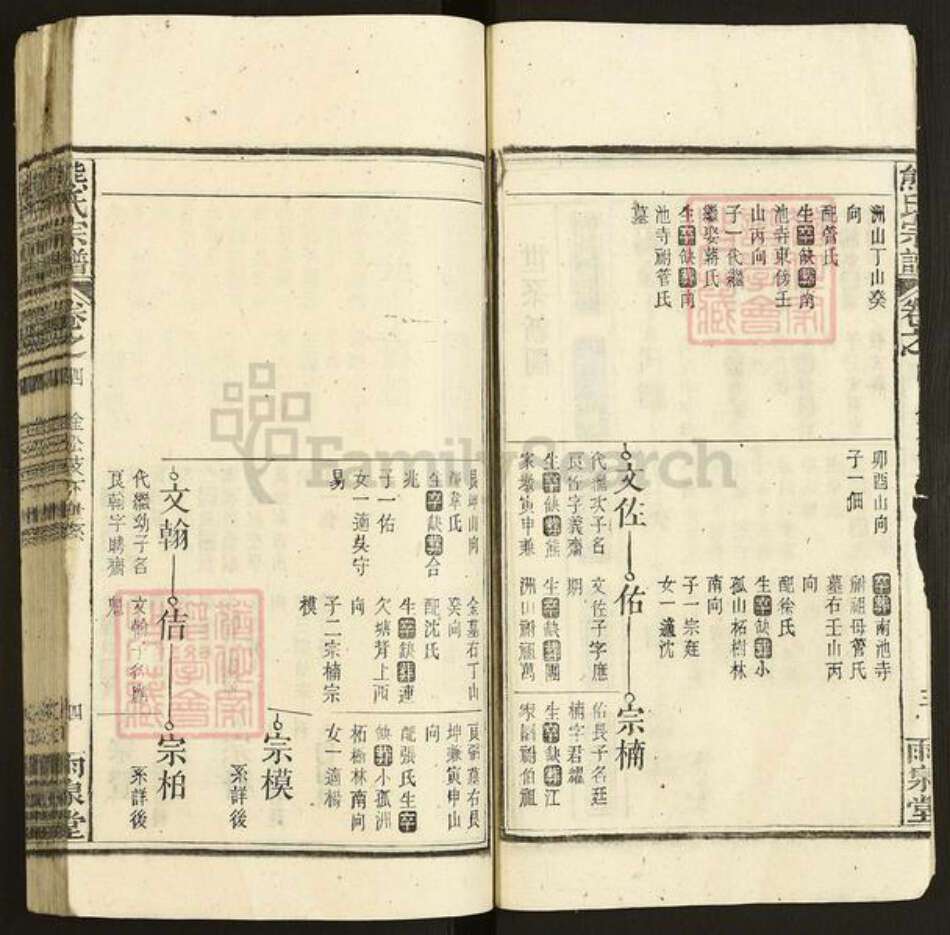 熊氏宗譜
卷之
雨泉堂
洲山丁山癸
向
配管氏
生卒缺葬南
池寺東傍壬
山丙向
子一代繼
繼娶蔣氏
生卒缺葬南
池寺祔管氏
墓
卯酉山向
子一佃
文佐
代繼次子名
良佐字義齋
生卒缺葬熊
家墩寅申兼
卒葬南池寺
祔祖母管氏
墓右壬山丙
向
配徐氏
生卒缺葬小
孤山柘樹林
南向
子一宗莛
女一適沈
佑
文佐子字應
期
生卒缺葬團
洲山祔祖萬
宗楠
佑長子名廷
楠字君耀
生卒缺葬江
家墻祔伯祖
艮坤山向
配韋氏
生卒缺葬合
兆
子一佑
女一適吳守
易
金墓右丁山
癸向
配沈氏
生卒缺葬連
欠塘背上西
向
子二宗楠宗
模
貢弼墓右艮
坤兼寅申山
向
配張氏生卒
缺葬小孤洲
柘樹林南向
女一適楊
宗模
系詳後
文翰
代繼幼子名
良翰字聘齋
佶
文翰子名應
魁
宗柏
系詳後
熊氏宗譜
卷之四
金松枝下世系
四
雨泉堂
FamilySearch